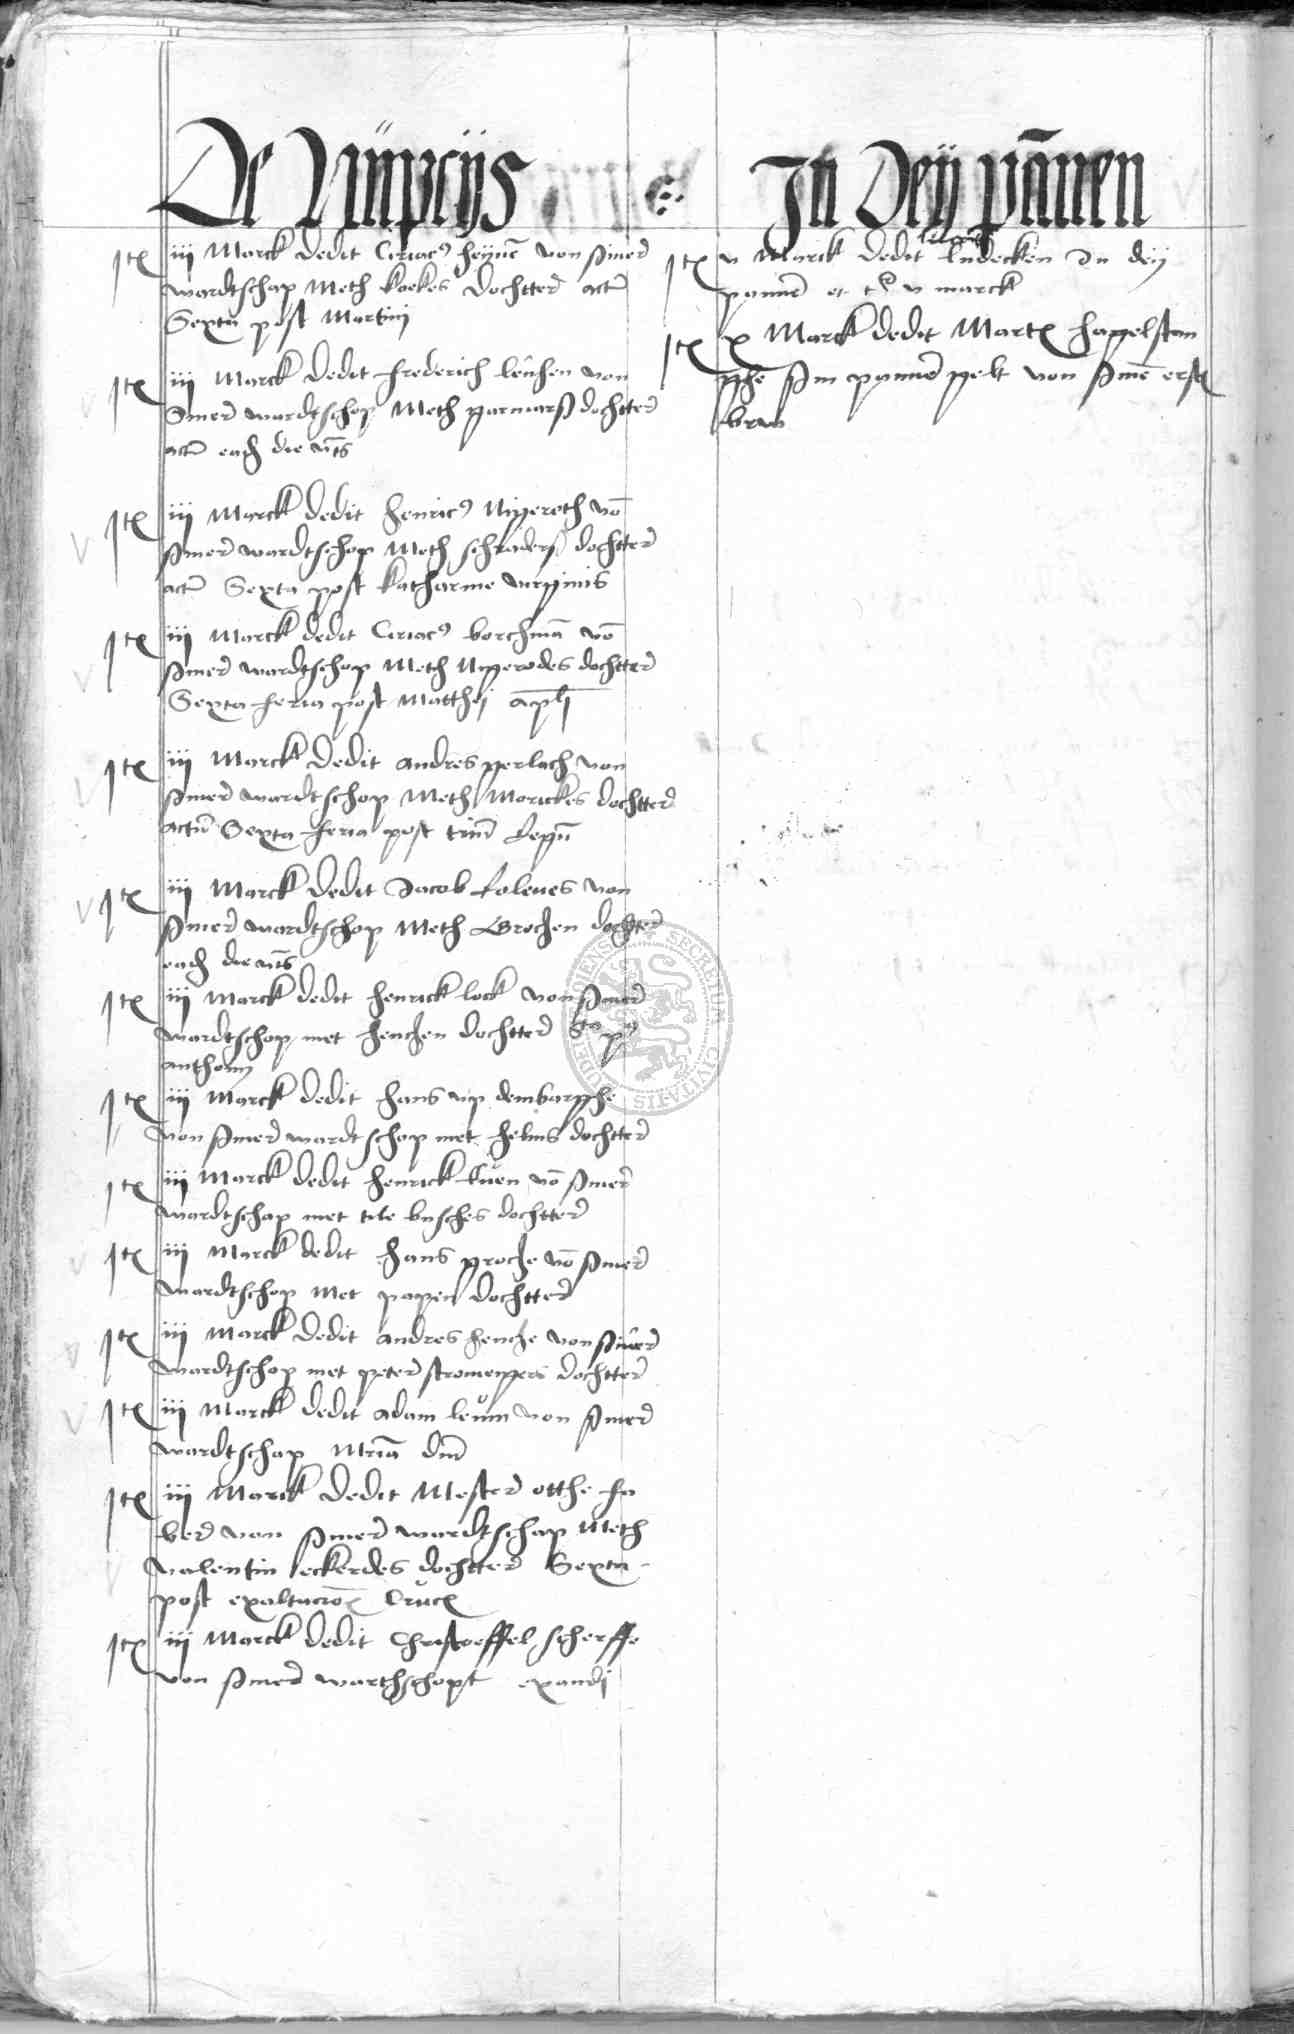 De Nupcijs
It͞ iij Marck dedit Ciriac9 heyne von siner
wardtschap Meth kockes dochtter act
Sexta post Martinj
It͞ iij Marck dedit frederich leuhen von
Siner wardtschop Meth parmarß dochtter
act ead die
It͞ iij Marck dedit henric9 Nigeroth vō
siner wardtschop Meth schraders dochtter
act Sexta post katharine virginis
It͞ iij Marck dedit Ciriac9 borchmā vō
siner wardtschop Meth Nigerodes dochtter
Sexta feria post Matthej apli
It͞ iij Marck dedit andres gerlach von
siner wardtschop Meth Morickes dochtter
actū Sexta feria post trium Regū
It͞ iij Marck dedit Jacob von
siner wardtschop Meth Grochen dochter
ead die
It͞ iij Marck dedit henrick lock von siner
wardtschop met henczen dochtter
anthonij
It͞ iij Marck dedit hans up dem
von siner wardt schop met helms dochtter
It͞ iij Marck dedit henrick vō siner
wardtschap met tile busches dochtter
It͞ iij Marck dedit hans grocze vō siner
wardtschop Met papen dochtter
It͞ iij Marck dedit andres hencze von siner
wardtschop met peter dochtter
It͞ iij Marck dedit adam von siner
wardtschap
It͞ iij Marck dedit Mester otthe fa
ber von siner wardtschap Meth
valentin eckerdes dochtter Sexta
post exaltacioē Cruc͞
It͞ iij Marck dedit Christoeffel scherffe
von siner warthschopt exaudj
In Dey pānen
It͞ v Marck dedit Ludecken In dey
panne et v marck
It͞ x Marck dedit Mart͞ hagelstan
sin panne gelt von sinē
bruw
SECRETUM CIVITATIS